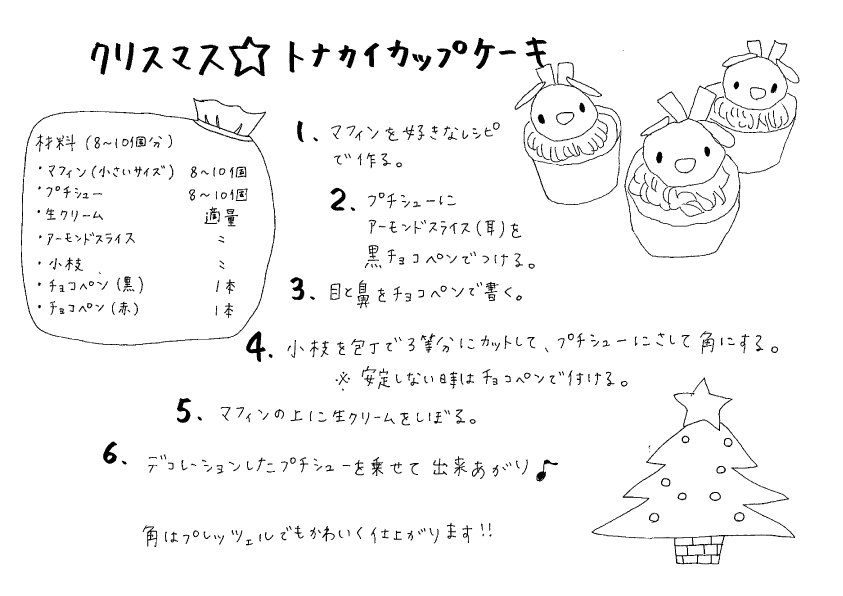 クリスマス☆トナカイカップケーキ
材料(8~10個分)
・マフィン(小さいサイズ) 8~10個
・プチシュー 8~10個
・生クリーム 適量
・アーモンドスライス 〃
・小枝 〃
・チョコペン(黒) 1本
・チョコペン(赤) 1本
1、マフィンを好きなレシピ
で作る。
2、プチシューに
アーモンドスライス(耳)を
黒チョコペンでつける。
3、目と鼻をチョコペンで書く。
4、小枝を包丁で3等分にカットして、プチシューにさして角にする。
※安定しない時はチョコペンで付ける。
5、マフィンの上に生クリームをしぼる。
6、デコレーションしたプチシューを乗せて出来あがり♪
角はプレッツェルでもかわいく仕上がります!!